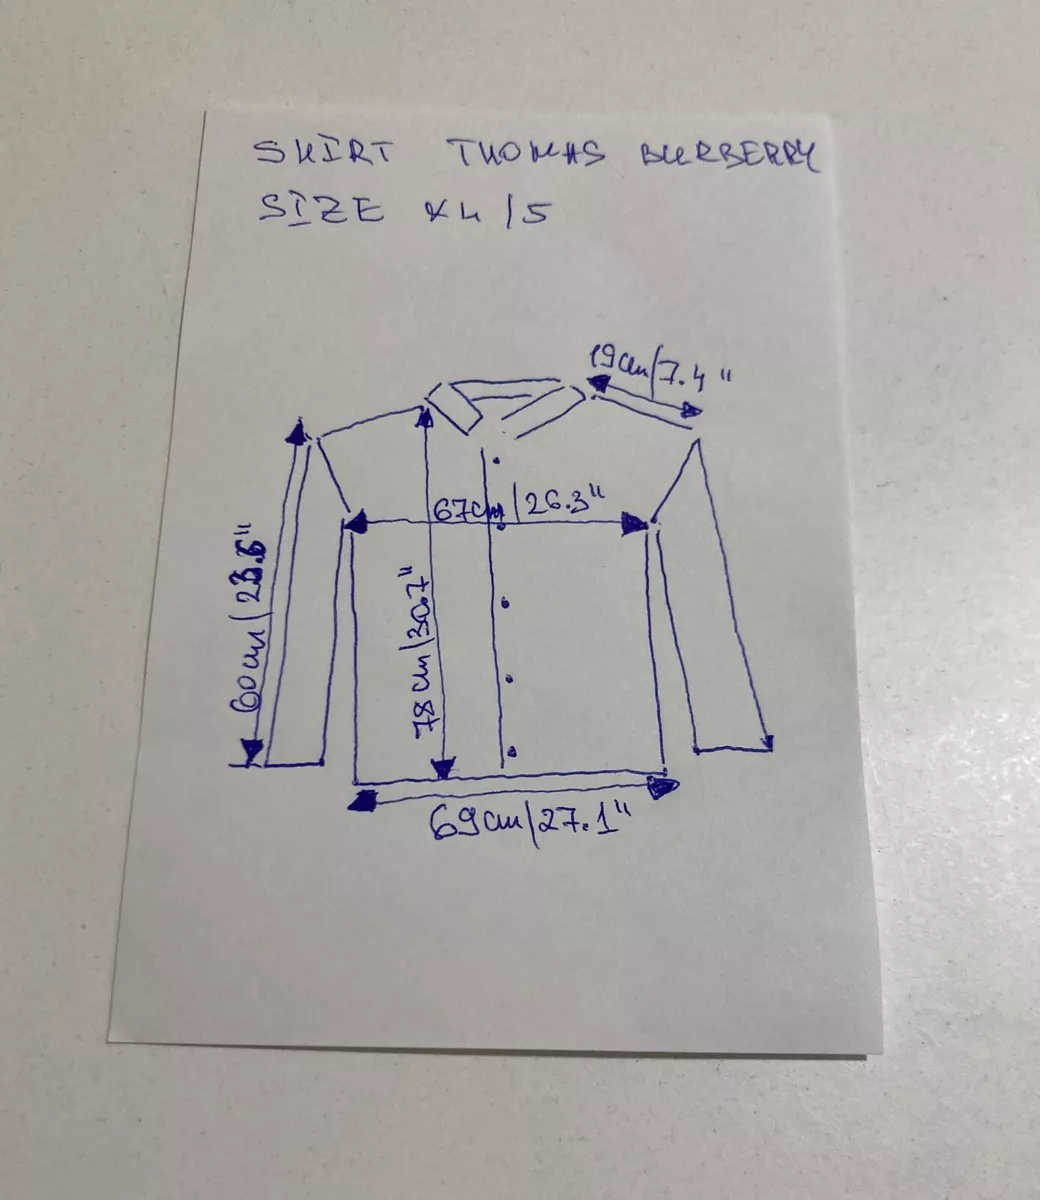 SHIRT THOMAS BURBERRY
SIZE XL/5
19cm/7.4"
67cm/26.3"
60cm/23.6"
78cm/30.7"
69cm/27.1"